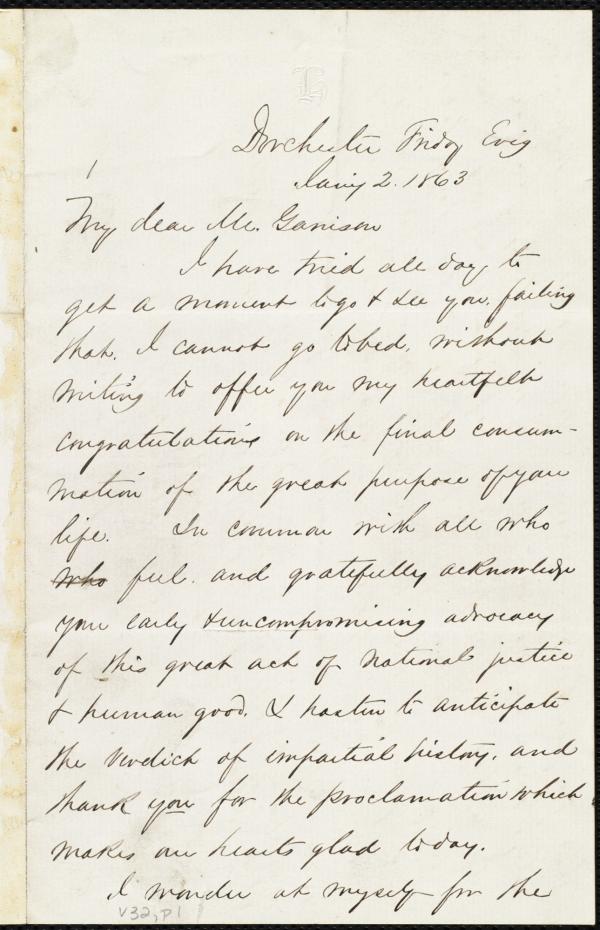 L
Dorchester Friday Evg
Jany 2. 1863
My dear Mr. Garrison
I have tried all day, to
get a moment to go & see you. failing
that. I cannot go to bed, without
writing to offer you my heartfelt
congratulations on the final consum-
mation of the great purpose of your
life. In common with all who
who feel. and gratefully acknowledge
your early & uncompromising advocacy
of this great act of national justice
& human good. I hasten to anticipate
the verdict of impartial history. and
thank you for the proclamation which
makes our hearts glad today.
I wonder at myself for the
V32, P1